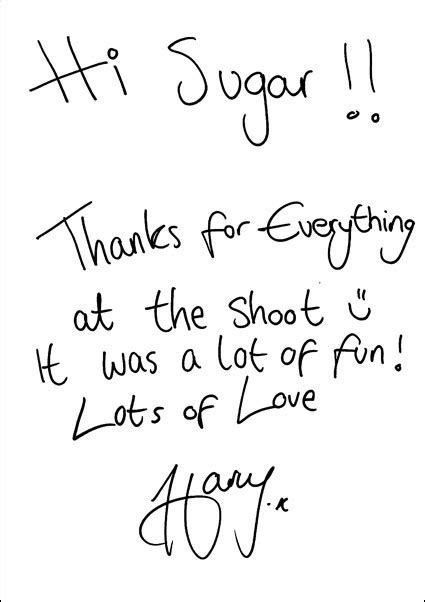 Hi Sugar!!
Thanks for Everything
at the Shoot ツ
It was a lot of fun!
Lots of Love
Harry.x